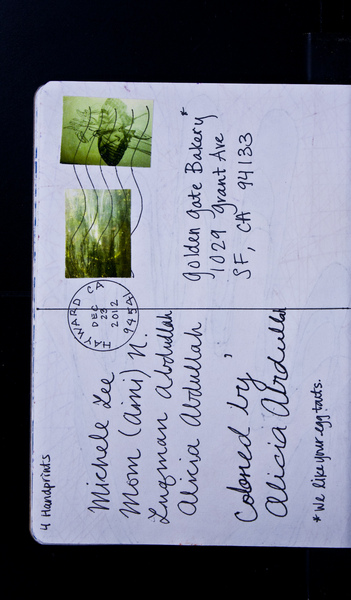 4 Handprints
Michele Lee
Mom (Aini) N.
Luqman Abdullah
Alicia Abdullah
Colored by
Alicia Abdullah
*We like your egg tarts.
HAYWARD CA
DEC 23
2012
9454
Golden Gate Bakery*
1029 Grant Ave
SF, CA 94133